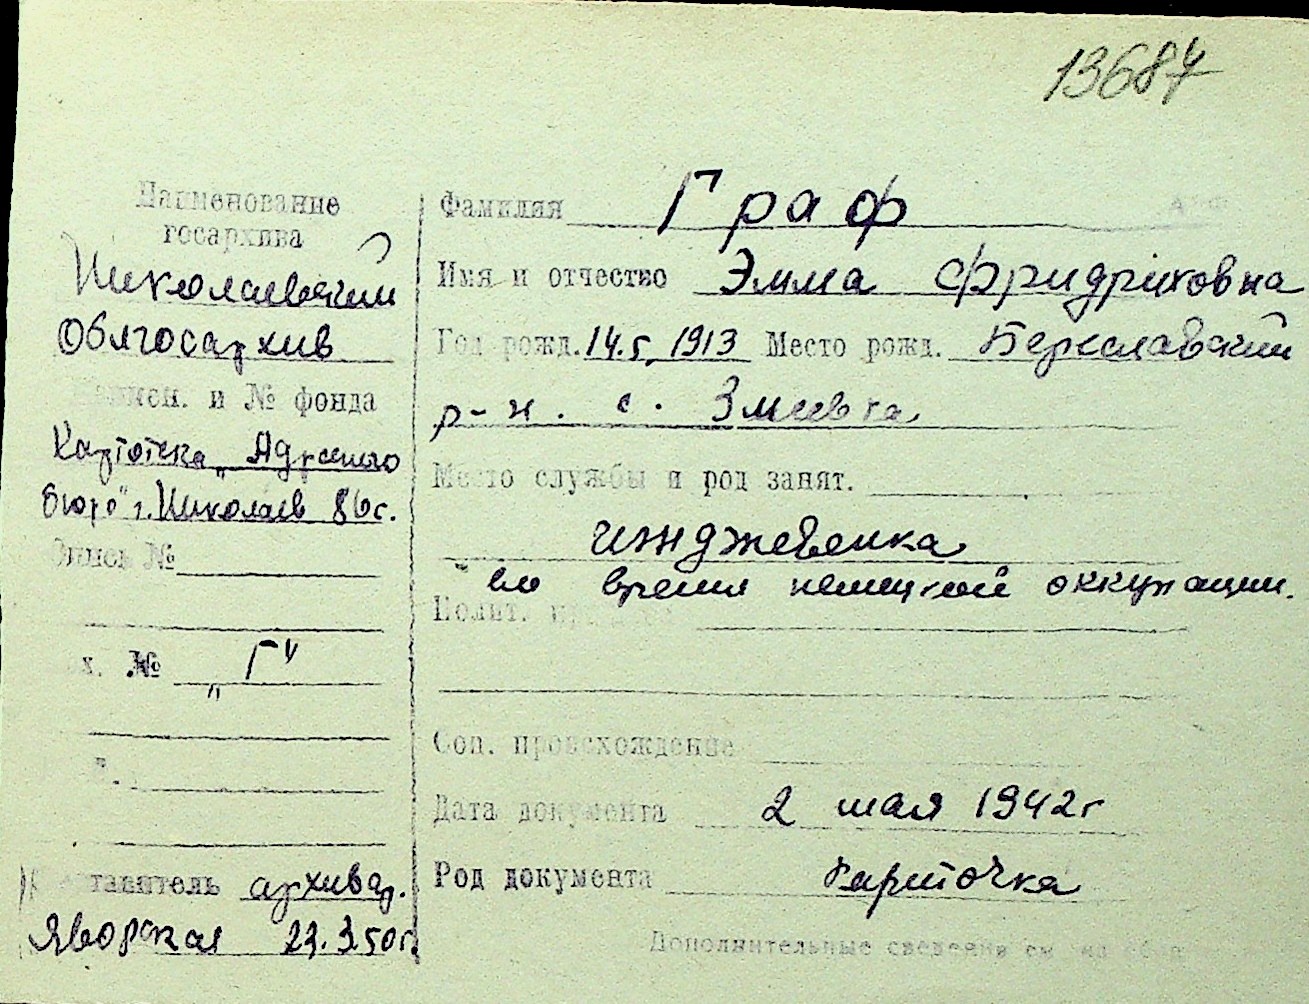 13687
Наименование
госархива
Николаевский
Облгосархив
Наимен. и № фонда
Картотека „Адресного
бюро" г. Николаев
Опись №
х. № „Г"
составитель архивар.
Яворская 23.3.50 г.
Фамилия Граф
Имя и отчество Эмма Фридриховна
Год рожд. 14.5.1913 Место рожд. Бериславский
р-н. с. Змиевка
Место службы и род занят.
иждивенка
во время немецкой оккупации.
Полит.
Соц. происхождение
Дата документа 2 мая 1942 г
Род документа карточка
Дополнительные сведения см. на обор